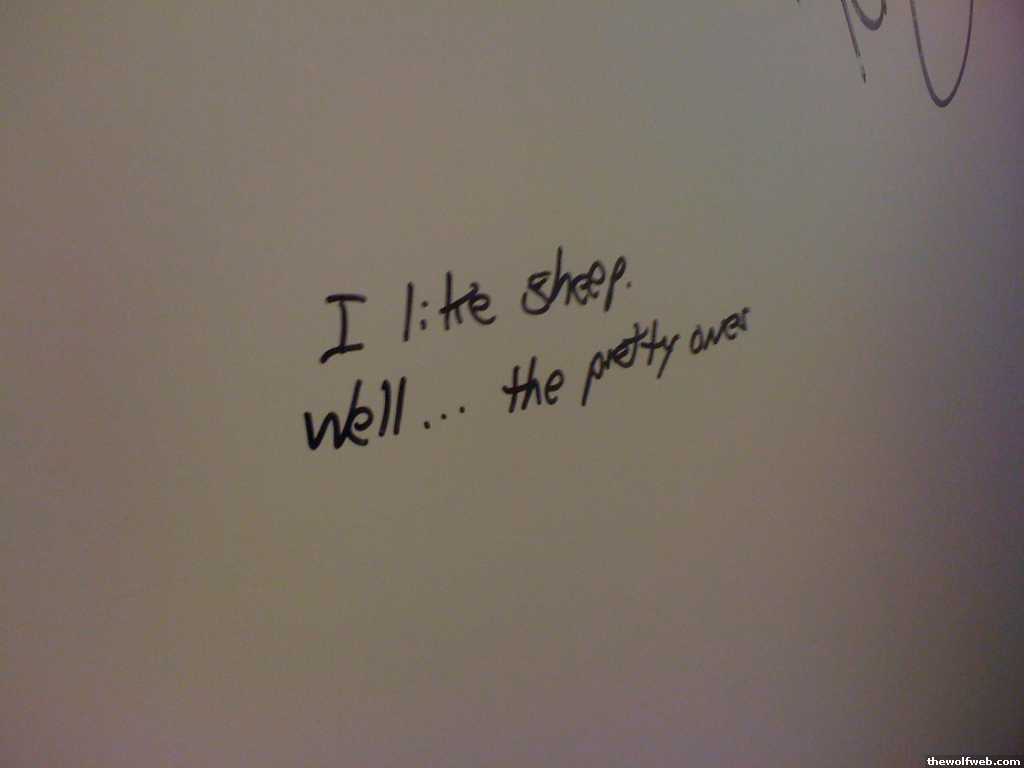 I like sheep.
Well... the pretty ones
thewolfweb.com